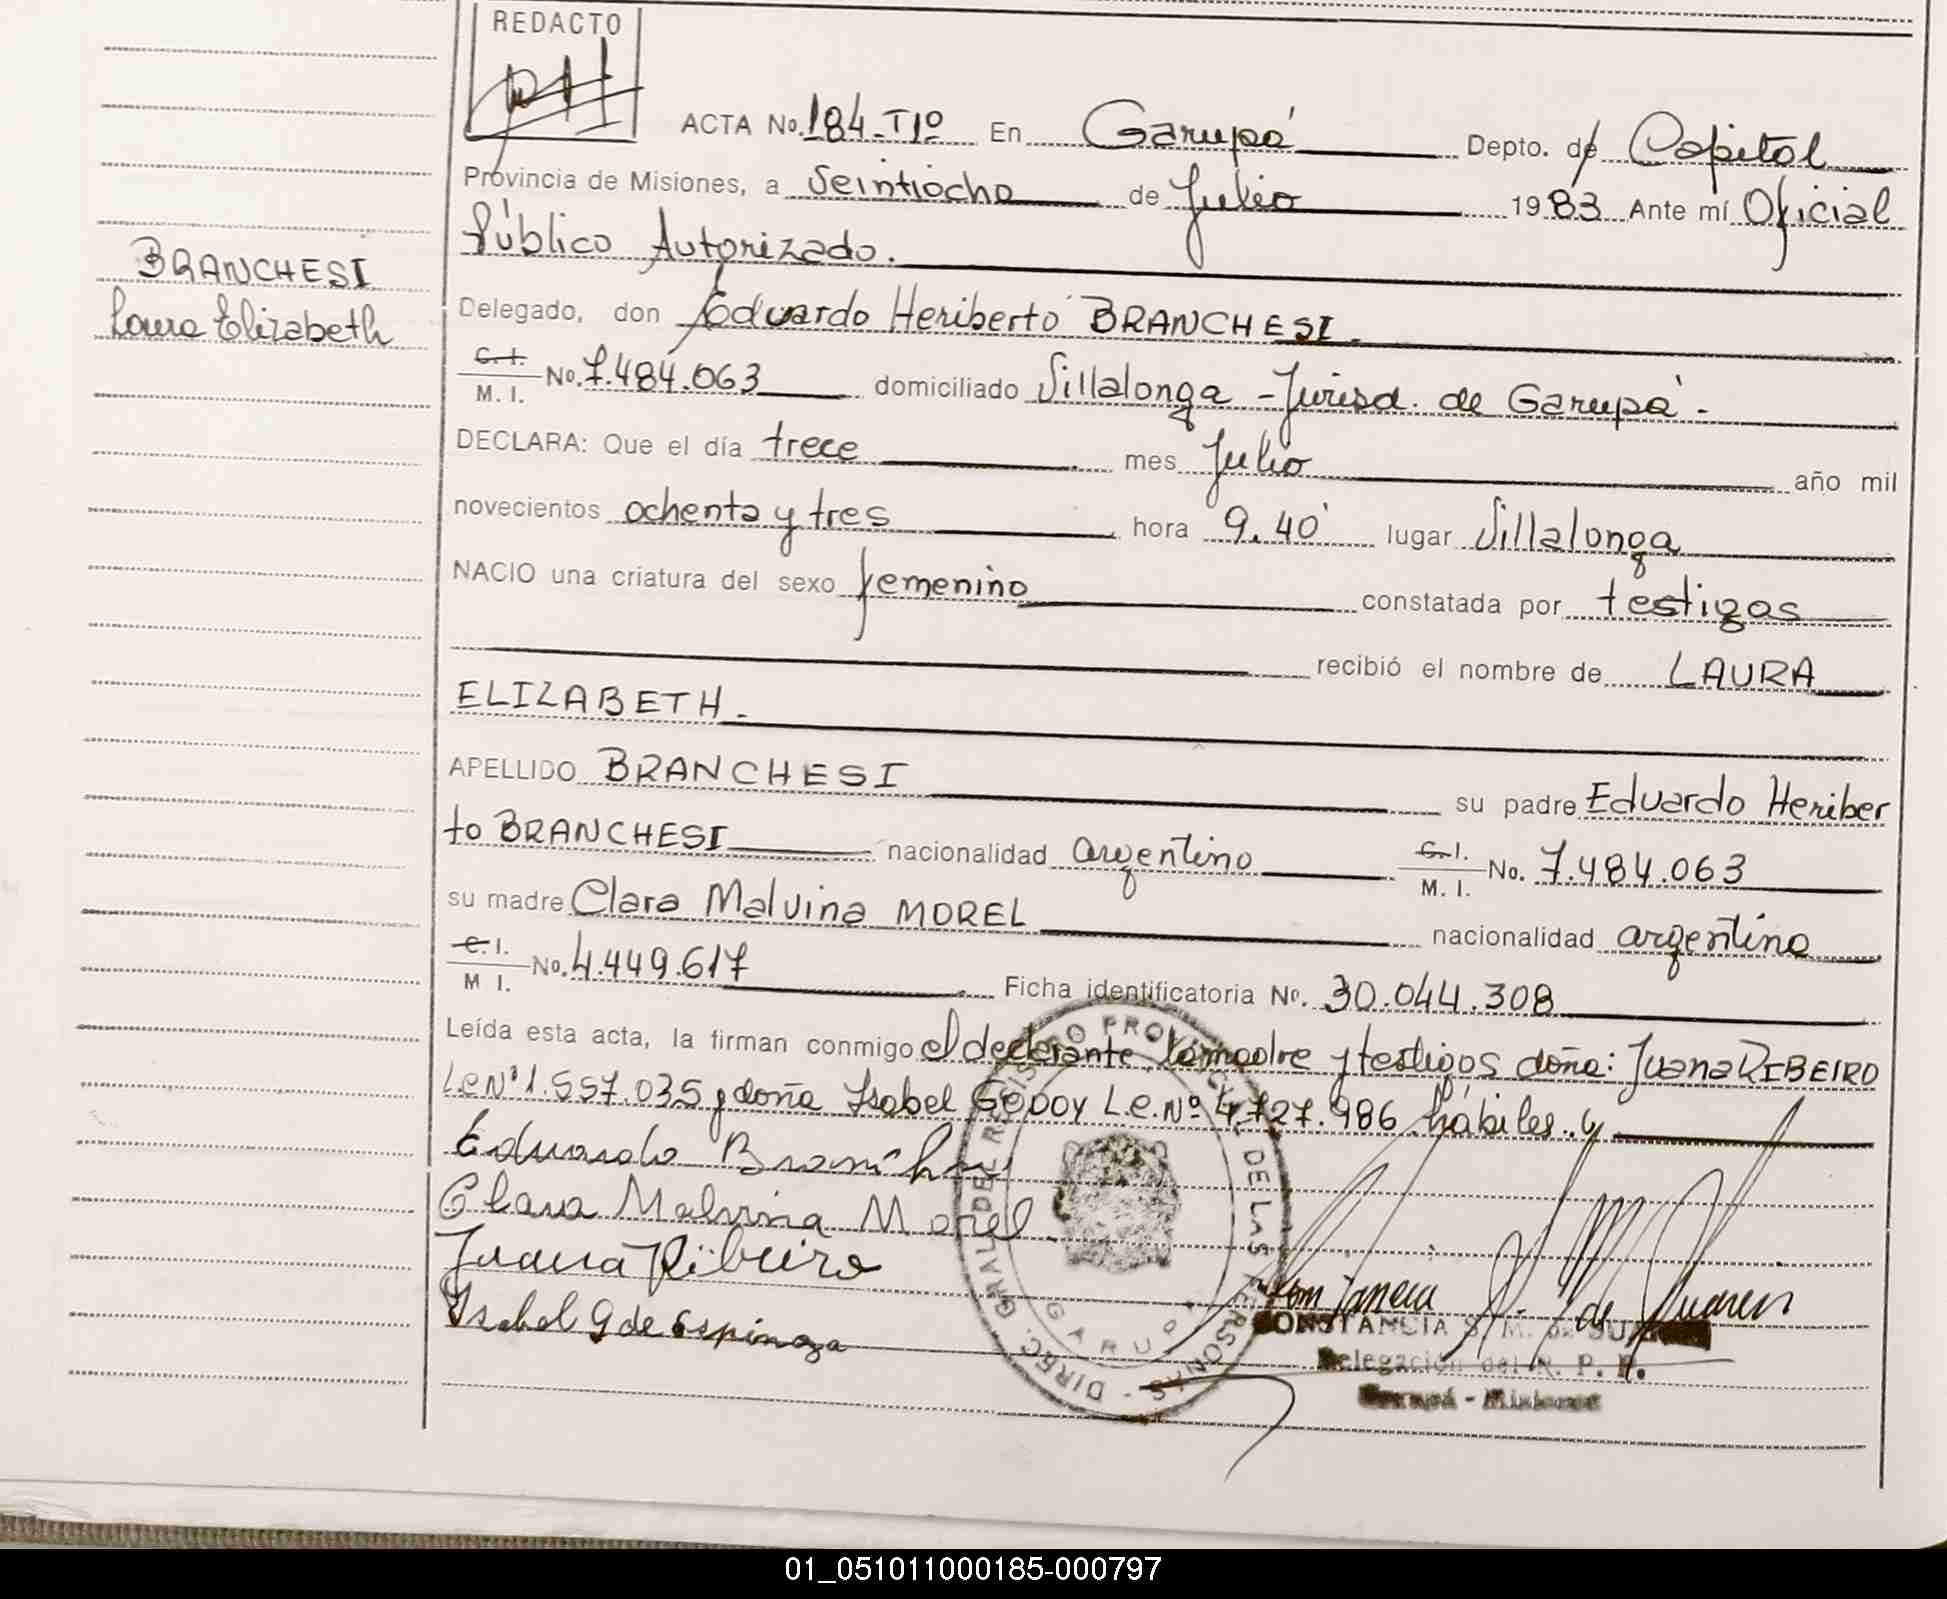 REDACTO
ACTA No. 184-Tº1º En Garupá Depto. de Capital
Provincia de Misiones, a Veintiocho de Julio 1983 Ante mí Oficial
Público Autorizado.
BRANCHESI
Laura Elizabeth
Delegado, don Eduardo Heriberto BRANCHESI.
C. I.
M. I. No. 7.484.063 domiciliado Villalonga - Jurisd. de Garupá.-
DECLARA: Que el día trece mes Julio año mil
novecientos ochenta y tres hora 9.40' lugar Villalonga
NACIO una criatura del sexo femenino constatada por testigos
recibió el nombre de LAURA
ELIZABETH.
APELLIDO BRANCHESI su padre Eduardo Heriber
to BRANCHESI nacionalidad argentino C. I. M. I. No. 7.484.063
su madre Clara Malvina MOREL nacionalidad argentina
C. I.
M I. No. 4.449.617 Ficha identificatoria No. 30.044.308
Leída esta acta, la firman conmigo el declarante, la madre y testigos doña: Juana RIBEIRO
L.e Nº 1.557.035 y doña Isabel GODOY L.e. Nº 4.727.986 hábiles.-
Eduardo Branchesi
Clara Malvina Morel
Juana Ribeiro
Isabel G de Espinoza
DIREC. GRAL. DEL REGISTRO PROVINCIAL DE LAS PERSONAS
GARUPA
CONSTANCIA S. M. de
Delegación del R. P. P.
Garupá - Misiones
01_051011000185-000797